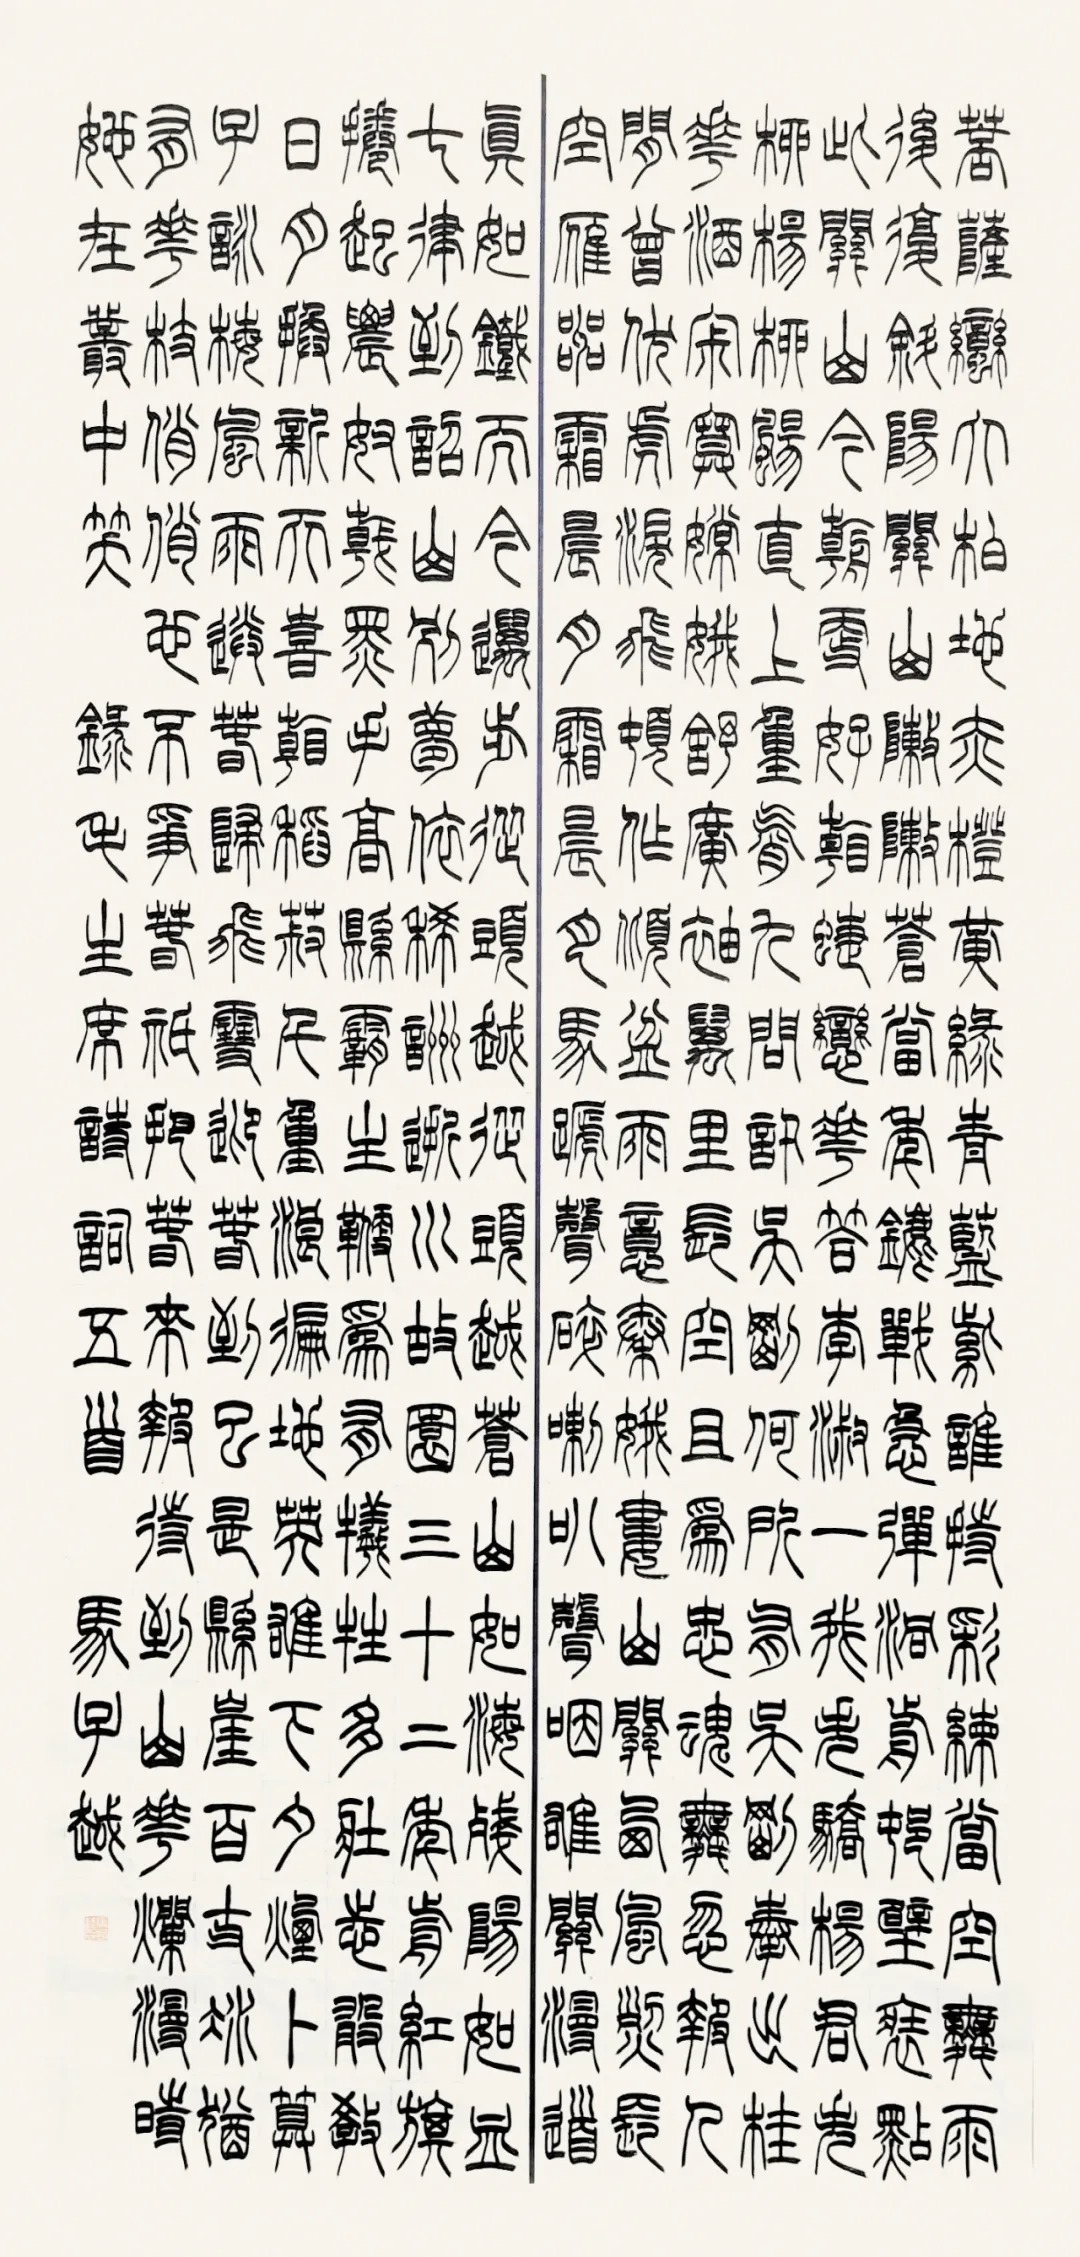 菩薩蠻大柏地赤橙黃綠青藍紫誰持彩練當空舞雨
後復斜陽關山陣陣蒼當年鏖戰急彈洞前村壁裝點
此關山今朝更好看蝶戀花答李淑一我失驕楊君失
柳楊柳颺直上重霄九問訊吳剛何所有吳剛捧出桂
花酒寂寞嫦娥舒廣袖萬里長空且為忠魂舞忽報人
間曾伏虎淚飛頓作傾盆雨憶秦娥婁山關西風烈長
空雁叫霜晨月霜晨月馬蹄聲碎喇叭聲咽雄關漫道
真如鐵而今邁步從頭越從頭越蒼山如海殘陽如血
七律到韶山別夢依稀詶逝川故園三十二年前紅旗
捲起農奴戟黑手高懸霸主鞭為有犧牲多壯志敢教
日月換新天喜看稻菽千重浪遍地英雄下夕煙卜算
子詠梅風雨送春歸飛雪迎春到已是懸崖百丈冰猶
有花枝俏俏也不爭春祇把春來報待到山花爛漫時
她在叢中笑 錄毛主席詩詞五首 馬子越